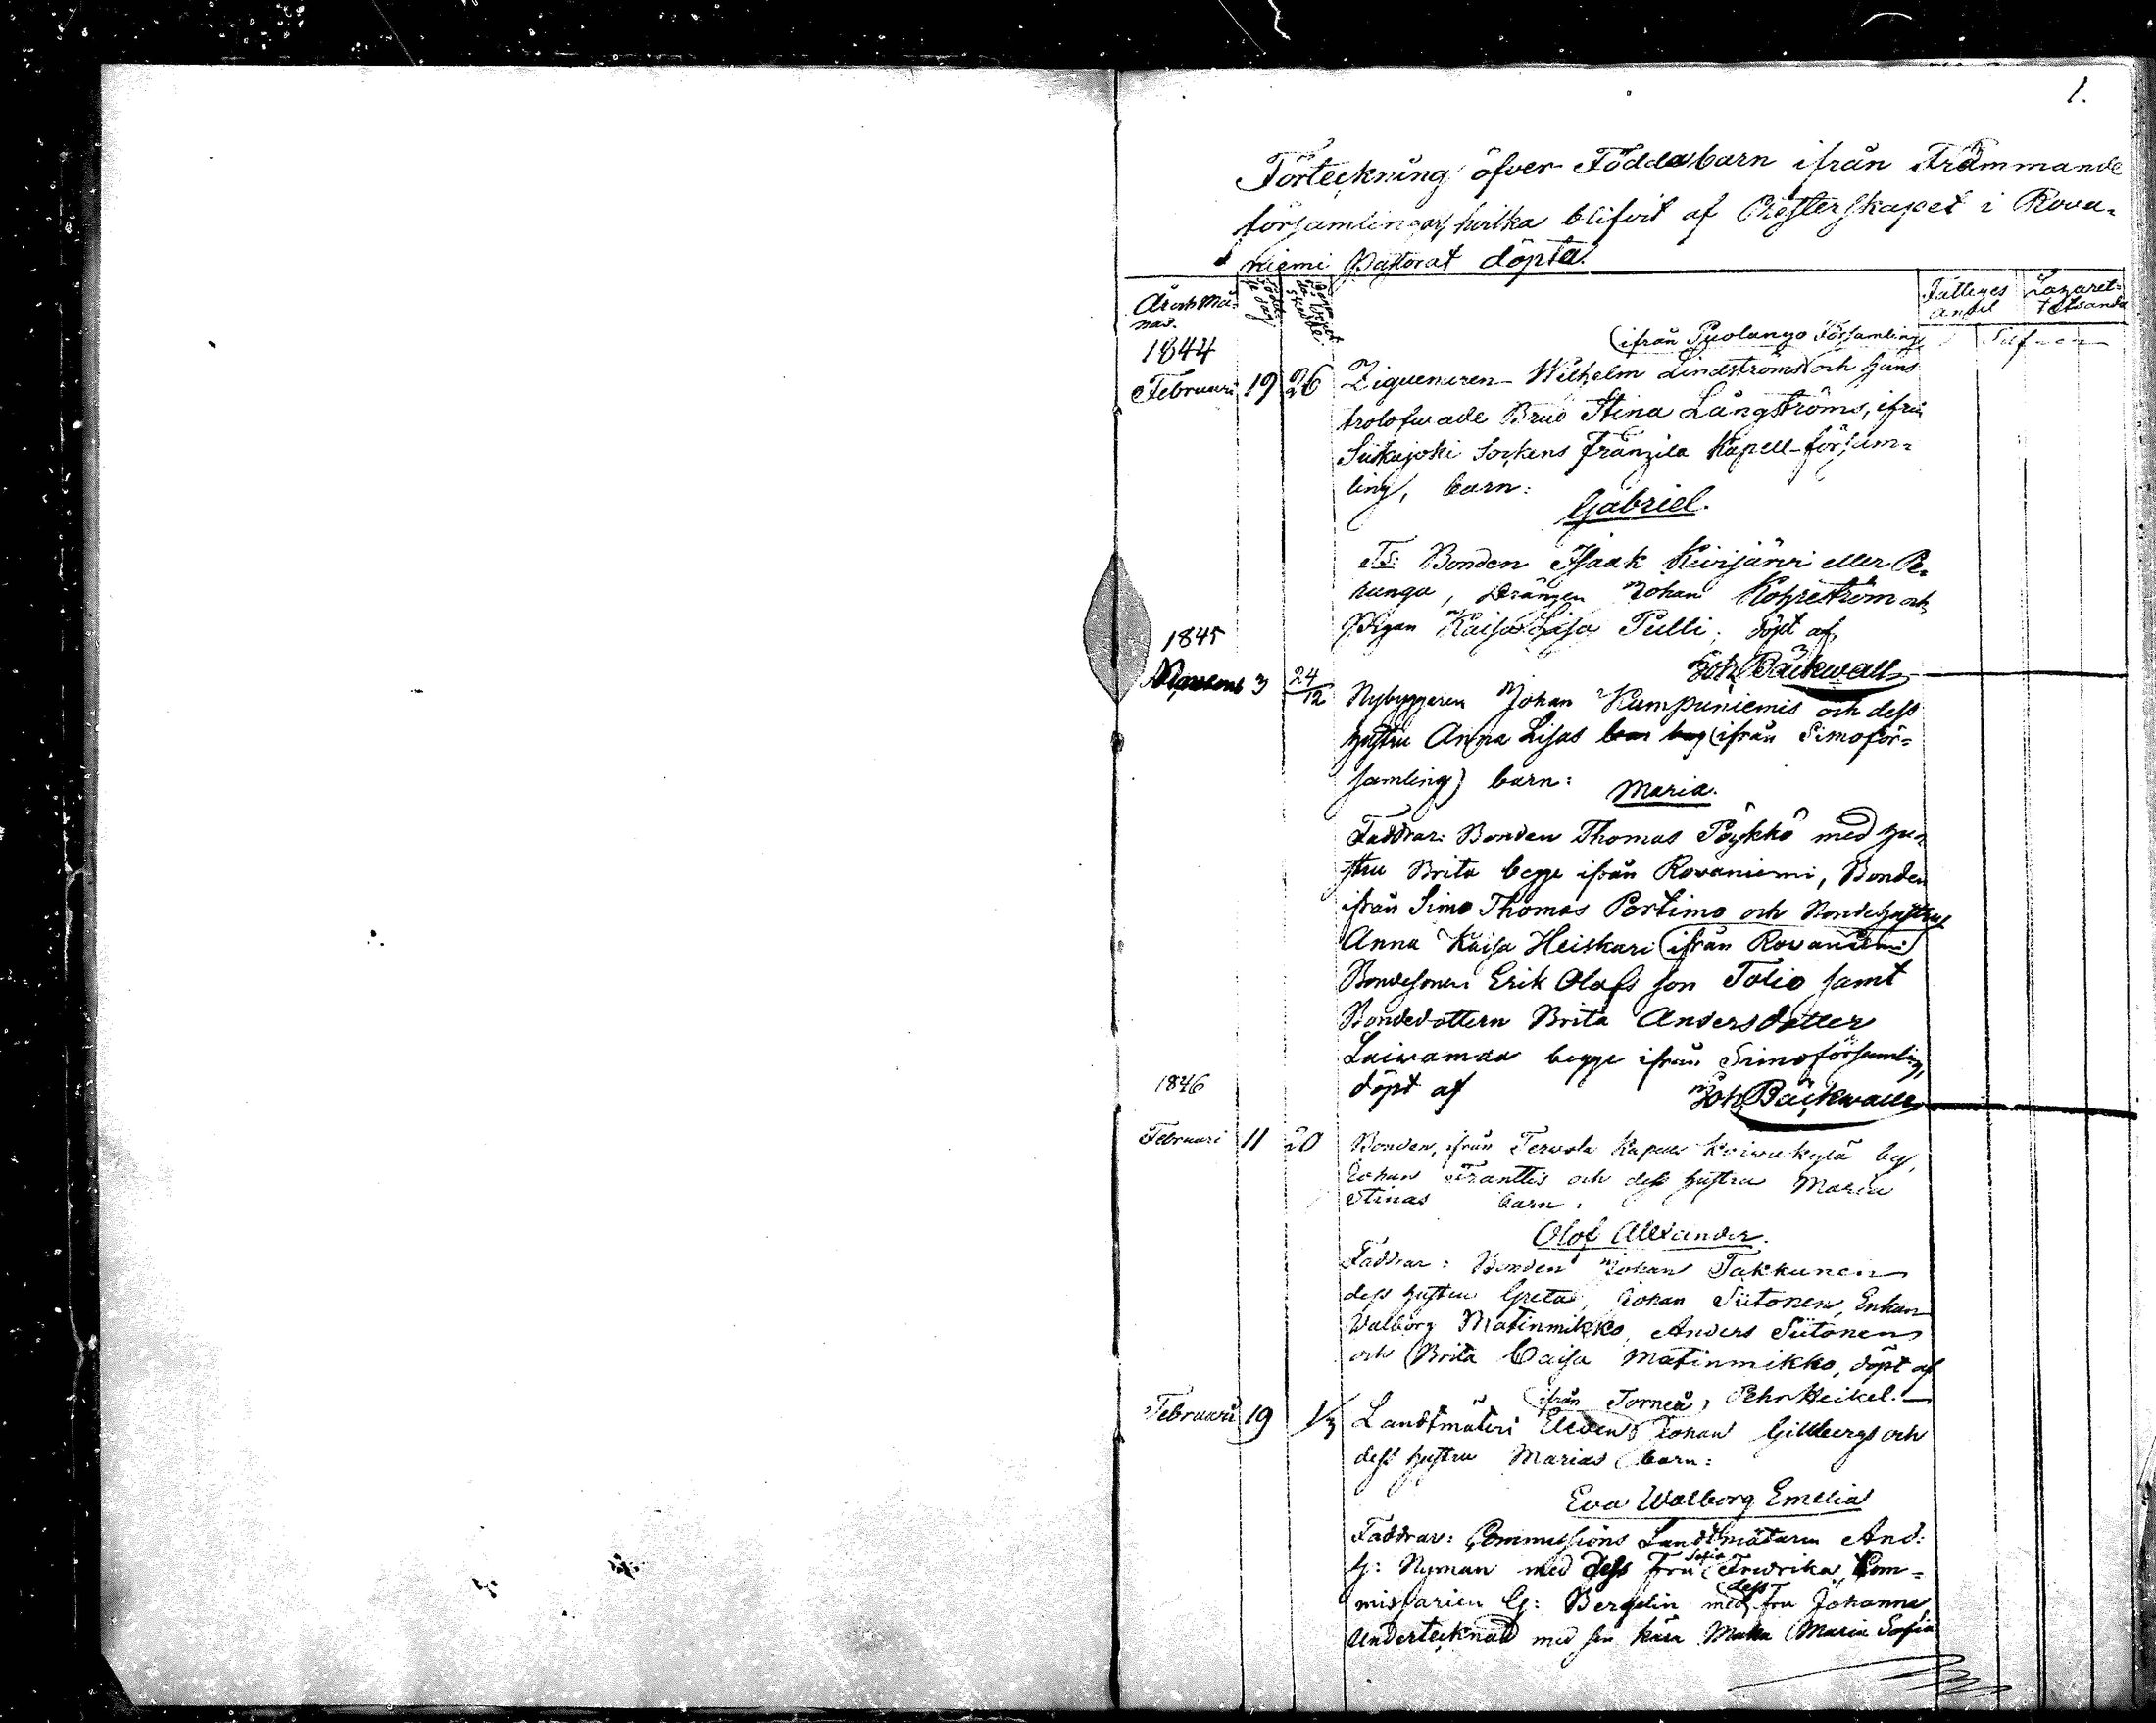 1.
Förteckning öfver Födda barn ifrån Främmande
församlingar, hvilka blifvit af Presterskapet i Rova=
niemi Pastorat döpta.
År och Må=
nad.
Fattiges
andel
Lazaret=
tets andel
Silfver
1844
(ifrån Puolango Församling)
Februari 19 26 Ziguenaren Wilhelm Lindströms och hans
trolofvade Brud Stina Långströms, ifrån
Siikajoki Sockens Frantzila Kapell-försam=
ling, barn:
Gabriel.
Ts: Bonden Isaak Kivijärvi eller Pe=
ranga, Drängen Johan Kohrström och
Pigan Kaisa Lisa Pulli, döpt af
Joh. Bäckwall
1845
3 24/12 Nybyggaren Johan Kumpuniemis och dess
hustru Anna Lisas (ifrån Simo för=
samling) barn:
Maria.
Faddrar: Bonden Thomas Pöykkö med hu=
stru Brita begge ifrån Rovaniemi, Bonden
ifrån Simo Thomas Portimo och Bondehustrun
Anna Kaisa Heiskari (ifrån Rovaniemi)
Bondesonen Erik Olofs son Tolio samt
Bondedottern Brita Andersdotter
Laivamaa begge ifrån Simo församling,
döpt af Joh. Bäckwall
1846
Februari 11 20 Bonden, ifrån Tervola Kapell Koivukylä by,
Johan Franttis och dess hustru Maria
Stinas barn:
Olof Alexander.
Faddrar: Bonden Johan Takkunen
dess hustru Greta, Johan Siitonen, Enkan
Walborg Matinmikko, Anders Siitonen
och Brita Caisa Matinmikko, döpt af
Pehr Heikel.
(ifrån Torneå)
Februari 19 1/3 Landtmäteri Elevens Johan Gillbergs och
dess hustru Marias barn:
Eva Walborg Emelia
Faddrar: Commissions Landtmätaren And:
G: Nyman med dess Fru Sofia Fredrika, Com=
missarien G: Bergelin med dess fru Johanna
Undertecknad med sin kära Maka Maria Sofia